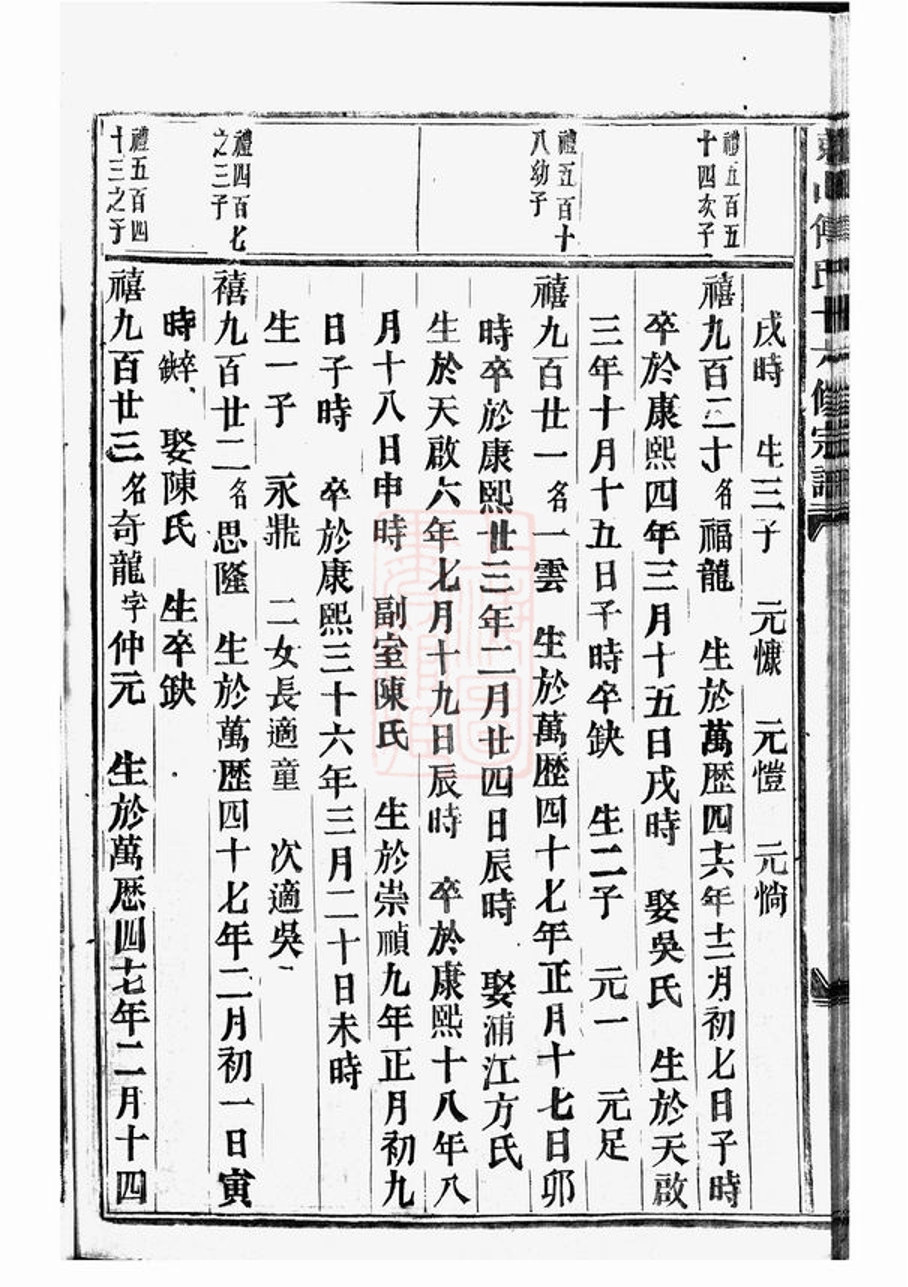 傅氏十六修宗譜
戌時　生三子　元慷　元愷　元惝
禮五百五
十四次子
禧九百二十名福龍　生於萬歴四十六年十二月初七日子時
卒於康熙四年三月十五日戌時　娶吳氏　生於天啟
三年十月十五日子時卒缺　生二子　元一　元足
禮五百十
八幼子
禧九百廿一名一雲　生於萬歴四十七年正月十七日卯
時卒於康熙廿三年二月廿四日辰時　娶浦江方氏
生於天啟六年七月十九日辰時　卒於康熙十八年八
月十八日申時　副室陳氏　生於崇禎九年正月初九
日子時　卒於康熙三十六年三月二十日未時
生一子　永鼎　二女長適童　次適吳
禮四百七
之三子
禧九百廿二名思隆　生於萬歴四十七年二月初一日寅
時卒缺　娶陳氏　生卒缺
禮五百四
十三之子
禧九百廿三名奇龍字仲元　生於萬歴四十七年二月十四